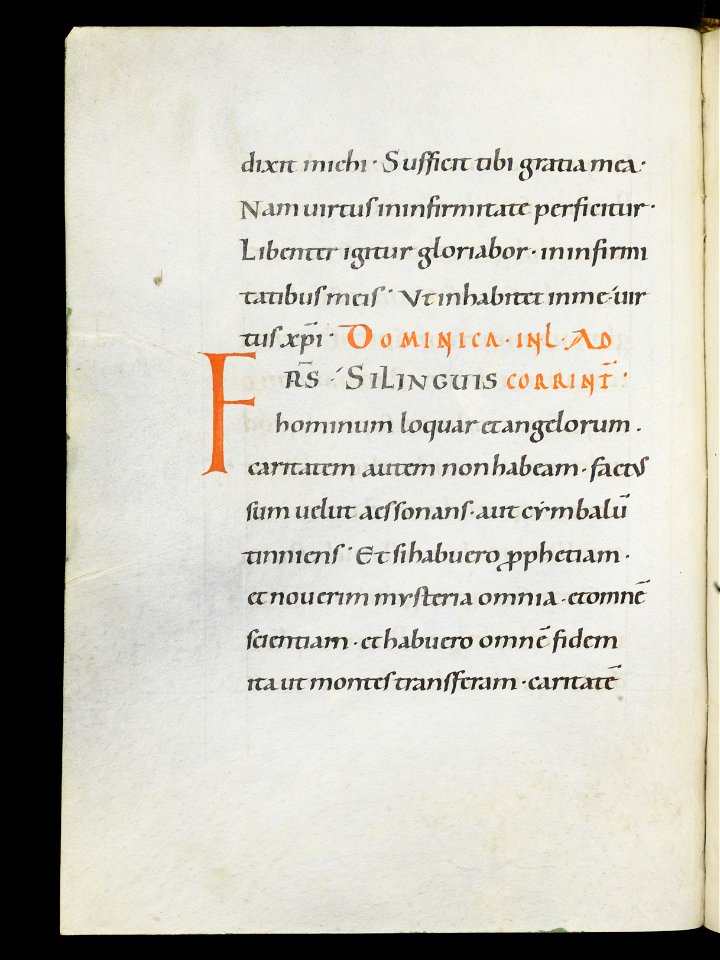 dixit michi · Sufficit tibi gratia mea ·
Nam uirtus in infirmitate perficitur ·
Libenter igitur gloriabor · in infirmi
tatibus meis · Vt inhabitet in me · uir
tus xp̄i · DOMINICA · IN L · AD
FRS̄ · SI LINGUIS CORRINT̄ ·
hominum loquar et angelorum .
caritatem autem non habeam · factus
sum uelut aes sonans · aut cymbalū
tinniens · Et si habuero ꝓphetiam ·
et nouerim mysteria omnia · et omnē
scientiam · et habuero omnē fidem
ita ut montes transferam · caritatē